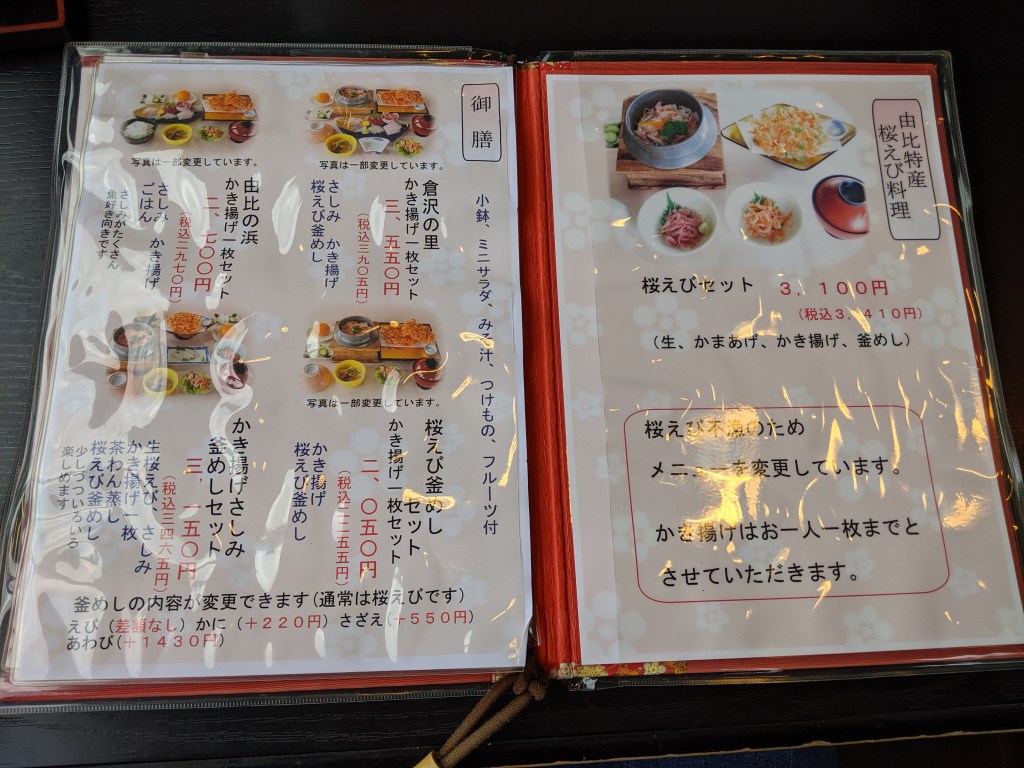 御膳
小鉢、ミニサラダ、みそ汁、つけもの、フルーツ付
写真は一部変更しています。
倉沢の里
かき揚げ一枚セット
三、五五〇円
(税込三九〇五円)
さしみ かき揚げ
桜えび釜めし
写真は一部変更しています。
由比の浜
かき揚げ一枚セット
二、七〇〇円
(税込二九七〇円)
さしみ かき揚げ
ごはん
さしみがたくさん
魚好き向きです
写真は一部変更しています。
桜えび釜めし
セット
かき揚げ一枚セット
二、〇五〇円
(税込二二五五円)
かき揚げ
桜えび釜めし
かき揚げさしみ
釜めしセット
三、一五〇円
(税込三四六五円)
生桜えび、さしみ
かき揚げ一枚
茶わん蒸し
桜えび釜めし
少しづついろいろ
楽しめます
釜めしの内容が変更できます(通常は桜えびです)
えび(差額なし)かに(+220円)さざえ(+550円)
あわび(+1430円)
由比特産
桜えび料理
桜えびセット 3,100円
(税込3,410円)
(生、かまあげ、かき揚げ、釜めし)
桜えび不漁のため
メニューを変更しています。
かき揚げはお一人一枚までと
させていただきます。